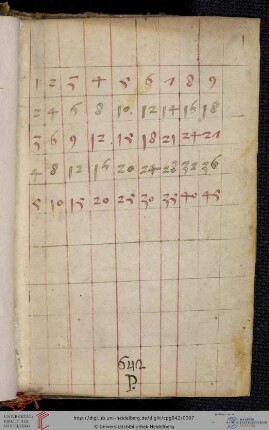 1 2 3 4 5 6 7 8 9
2 4 6 8 10 12 14 16 18
3 6 9 12 15 18 21 24 27
4 8 12 16 20 24 28 32 36
5 10 15 20 25 30 35 40 45
642
P.
https://digi.ub.uni-heidelberg.de/diglit/cpg642/0307
© Universitätsbibliothek Heidelberg